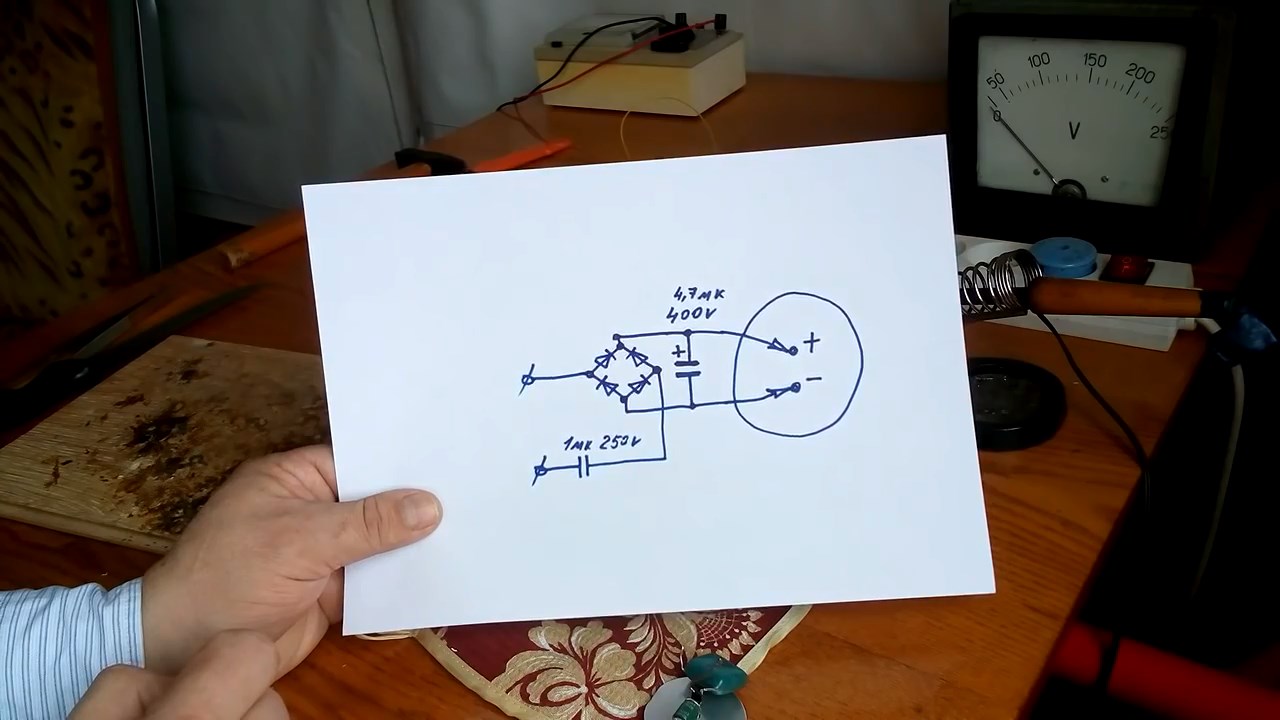 50 100 150 200 25
0
V
4,7мк
400V
+
+
−
1мк 250V